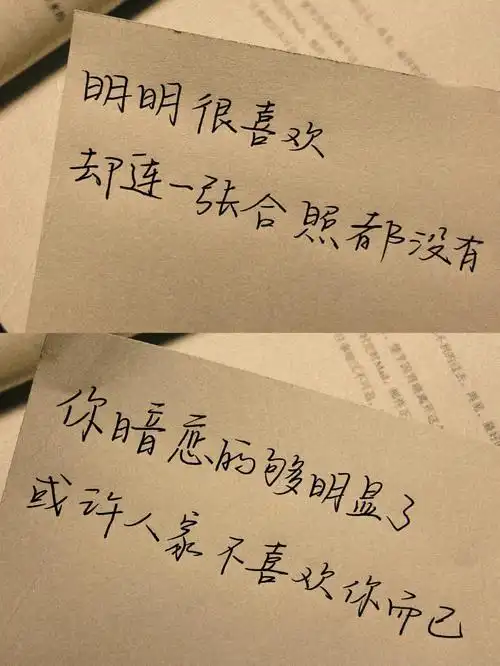 明明很喜欢
却连一张合照都没有
你暗恋的够明显了
或许人家不喜欢你而已